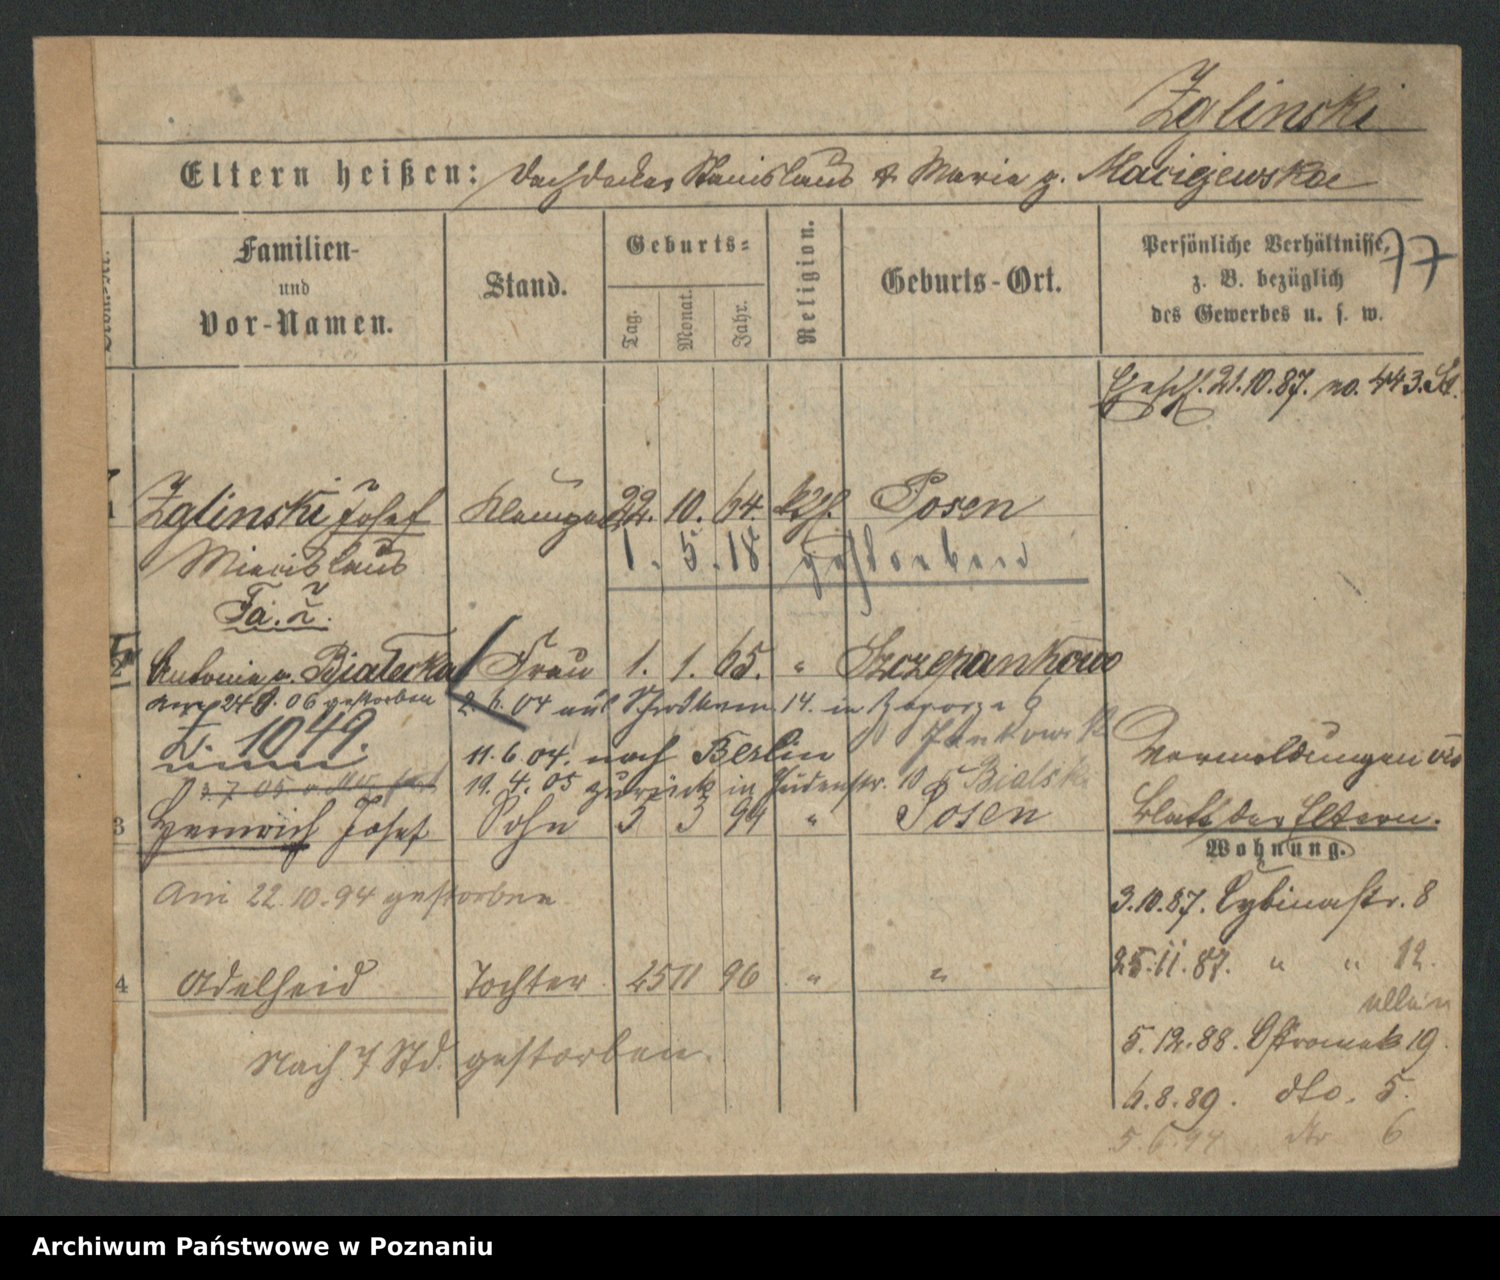 Zglinski
Eltern heißen: Dachdecker Stanislaus & Maria g. Maciejewskae
77
Familien-
und
Vor-Namen.
Stand.
Geburts-
Tag.
Monat.
Jahr.
Religion.
Geburts-Ort.
Persönliche Verhältnisse,
z. B. bezüglich
des Gewerbes u. s. w.
Ehesch. 21.10.87. no. 443. St.
1 Zglinski Josef Klempner 22. 10. 64. kth. Posen
Miecislaus 1. 5. 18. gestorben
2 Antonie g. Bialecka Frau 1. 1. 65. " Szczepankowo
am 24 8. 06 gestorben 2. 6. 04 auf Schrodkam. 14. in
Z. 1049. 11. 6. 04. nach Berlin
19. 4. 05 zurück in Judenstr. 10
Vermeldungen
Blatt der Eltern.
3 Heinrich Josef Sohn 3 3 94 " Posen
Am 22.10.94 gestorben
4 Adelheid Tochter 25 11 96 " "
Nach 7 Std. gestorben.
Wohnung.
3.10.87. Cybinastr. 8
25.11.87. " " 12.
allein
5.12.88. Ostrowek 19.
6.8.89. dto. 5.
5.6.94 dto 6
Archiwum Państwowe w Poznaniu